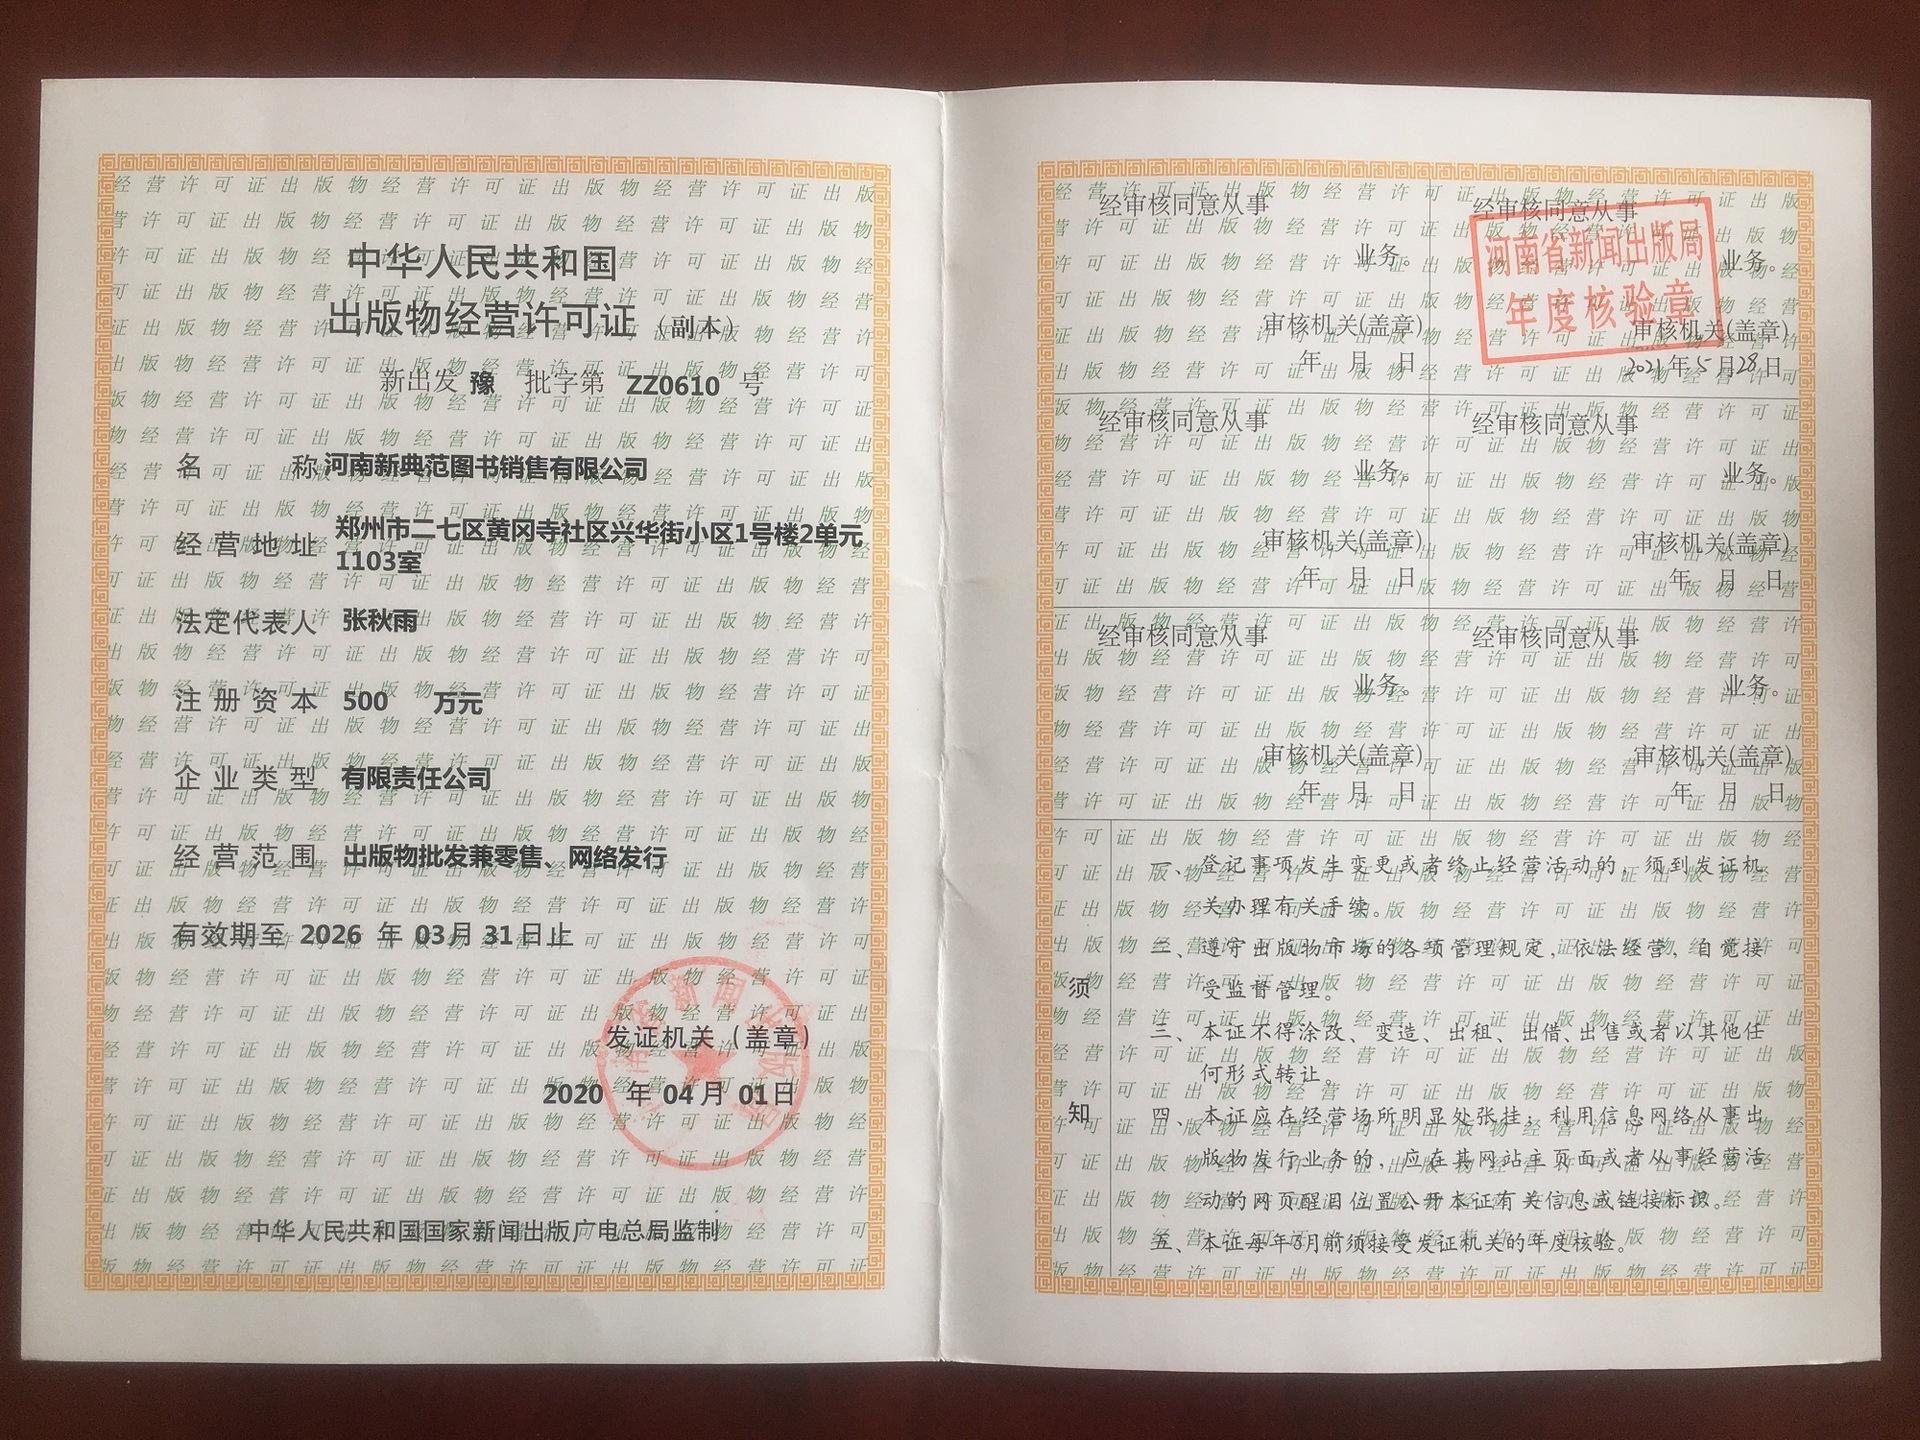 中华人民共和国
出版物经营许可证（副本）
新出发 豫 批字第 ZZ0610 号
名 称 河南新典范图书销售有限公司
经营地址 郑州市二七区黄冈寺社区兴华街小区1号楼2单元
1103室
法定代表人 张秋雨
注册资本 500 万元
企业类型 有限责任公司
经营范围 出版物批发兼零售、网络发行
有效期至 2026 年 03月 31日止
发证机关（盖章）
2020 年 04月 01日
中华人民共和国国家新闻出版广电总局监制
经审核同意从事
业务。
审核机关(盖章)
年 月 日
经审核同意从事
业务。
河南省新闻出版局
年度核验章
审核机关(盖章)
2021年5月28日
经审核同意从事
业务。
审核机关(盖章)
年 月 日
经审核同意从事
业务。
审核机关(盖章)
年 月 日
经审核同意从事
业务。
审核机关(盖章)
年 月 日
经审核同意从事
业务。
审核机关(盖章)
年 月 日
须知
一、登记事项发生变更或者终止经营活动的，须到发证机
关办理有关手续。
二、遵守出版物市场的各项管理规定，依法经营，自觉接
受监督管理。
三、本证不得涂改、变造、出租、出借、出售或者以其他任
何形式转让。
四、本证应在经营场所明显处张挂；利用信息网络从事出
版物发行业务的，应在其网站主页面或者从事经营活
动的网页醒目位置公开本证有关信息或链接标识。
五、本证每年3月前须接受发证机关的年度核验。